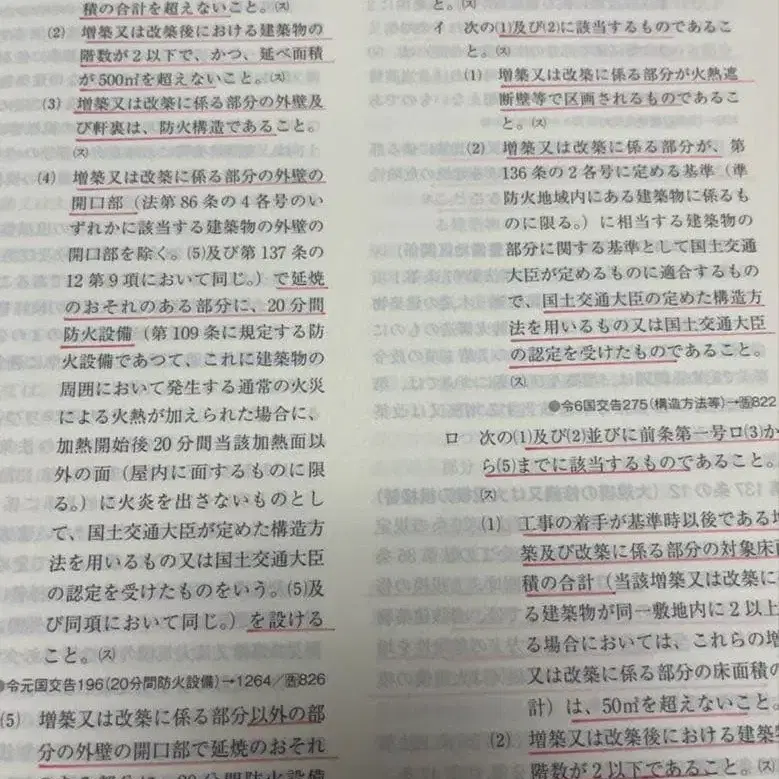 積の合計を超えないこと。㋜
(2) 増築又は改築後における建築物の
階数が2以下で、かつ、延べ面積
が500㎡を超えないこと。㋜
(3) 増築又は改築に係る部分の外壁及
び軒裏は、防火構造であること。
㋜
(4) 増築又は改築に係る部分の外壁の
開口部（法第86条の4各号のい
ずれかに該当する建築物の外壁の
開口部を除く。(5)及び第137条の
12第9項において同じ。）で延焼
のおそれのある部分に、20分間
防火設備（第109条に規定する防
火設備であつて、これに建築物の
周囲において発生する通常の火災
による火熱が加えられた場合に、
加熱開始後20分間当該加熱面以
外の面（屋内に面するものに限
る。）に火炎を出さないものとし
て、国土交通大臣が定めた構造方
法を用いるもの又は国土交通大臣
の認定を受けたものをいう。(5)及
び同項において同じ。）を設ける
こと。㋜
●令元国交告196（20分間防火設備）→1264／
826
(5) 増築又は改築に係る部分以外の部
分の外壁の開口部で延焼のおそれ
と。㋜
イ 次の(1)及び(2)に該当するものであるこ
と。㋜
(1) 増築又は改築に係る部分が火熱遮
断壁等で区画されるものであるこ
と。㋜
(2) 増築又は改築に係る部分が、第
136条の2各号に定める基準（準
防火地域内にある建築物に係るも
のに限る。）に相当する建築物の
部分に関する基準として国土交通
大臣が定めるものに適合するもの
で、国土交通大臣の定めた構造方
法を用いるもの又は国土交通大臣
の認定を受けたものであること。
㋜
●令6国交告275（構造方法等）→
822
ロ 次の(1)及び(2)並びに前条第一号ロ(3)か
ら(5)までに該当するものであること。
㋜
(1) 工事の着手が基準時以後である増
築及び改築に係る部分の対象床面
積の合計（当該増築又は改築に係
る建築物が同一敷地内に2以上
る場合においては、これらの増
又は改築に係る部分の床面積の
計）は、50㎡を超えないこと。
(2) 増築又は改築後における建築物
階数が2以下であること。㋜